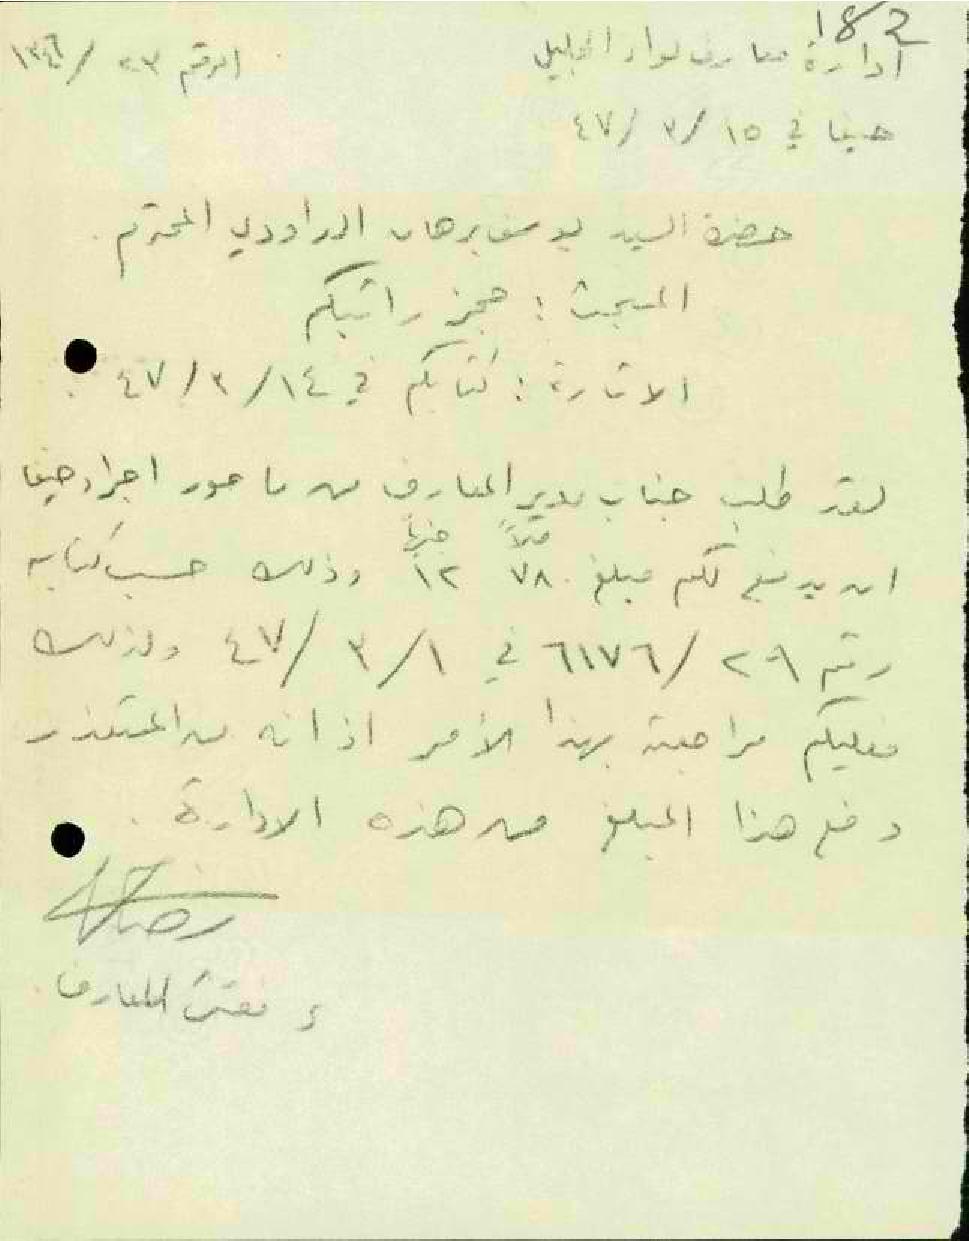 182
ادارة معارف لواء الجليل الرقم ٢٣ / ١٣٤٦
حيفا في ١٥ / ٣ / ٤٧
حضرة السيد يوسف برهان الداودي المحترم .
المبحث : حجز راتبكم
الاشارة : كتابكم في ١٤ / ٣ / ٤٧ .
لقد طلب جناب مدير المعارف من مأمور اجراء حيفا
ان يدفع لكم مبلغ ٧٨ ملاً ١٢ جنيهاً وذلك حسب كتابه
رقم ٢٩ / ٦١٧٦ في ١ / ٣ / ٤٧ ولذلك
فعليكم مراجعته بهذا الأمر اذ انه من المتعذر
دفع هذا المبلغ من هذه الادارة .
ء مفتش المعارف .